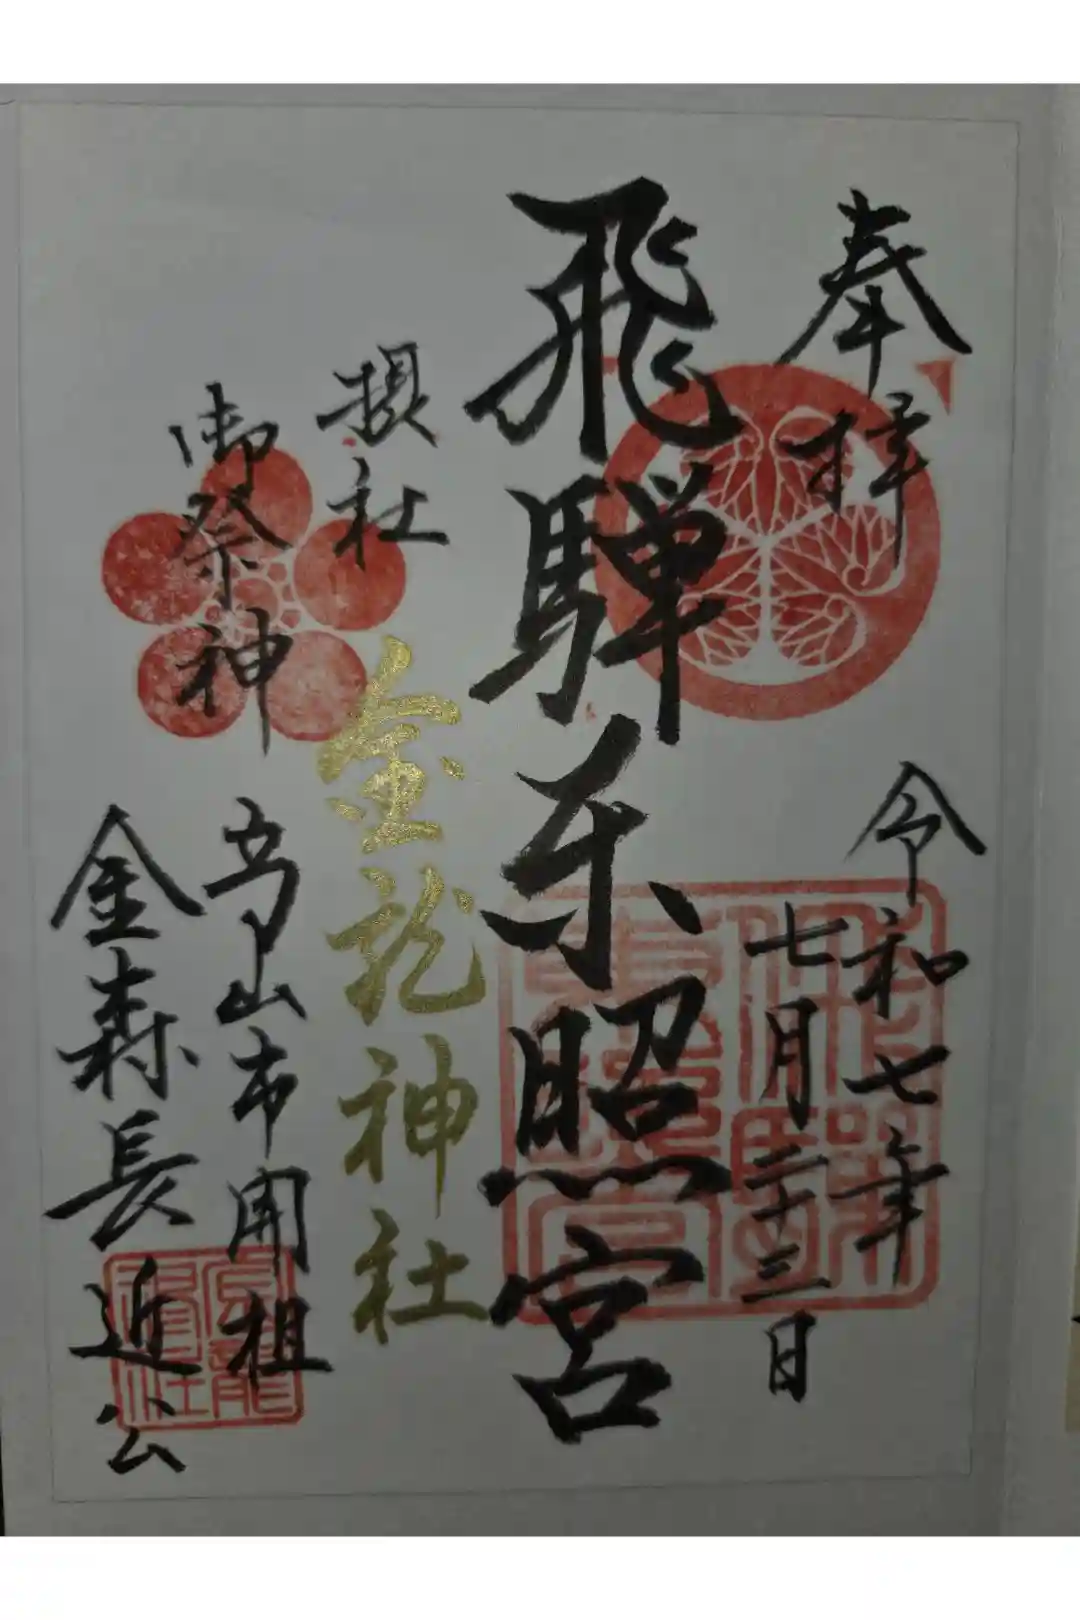 奉拝
令和七年
七月二十三日
飛騨東照宮
摂社
金龍神社
御祭神
高山市開祖
金森長近公
飛騨東照宮
金龍神社